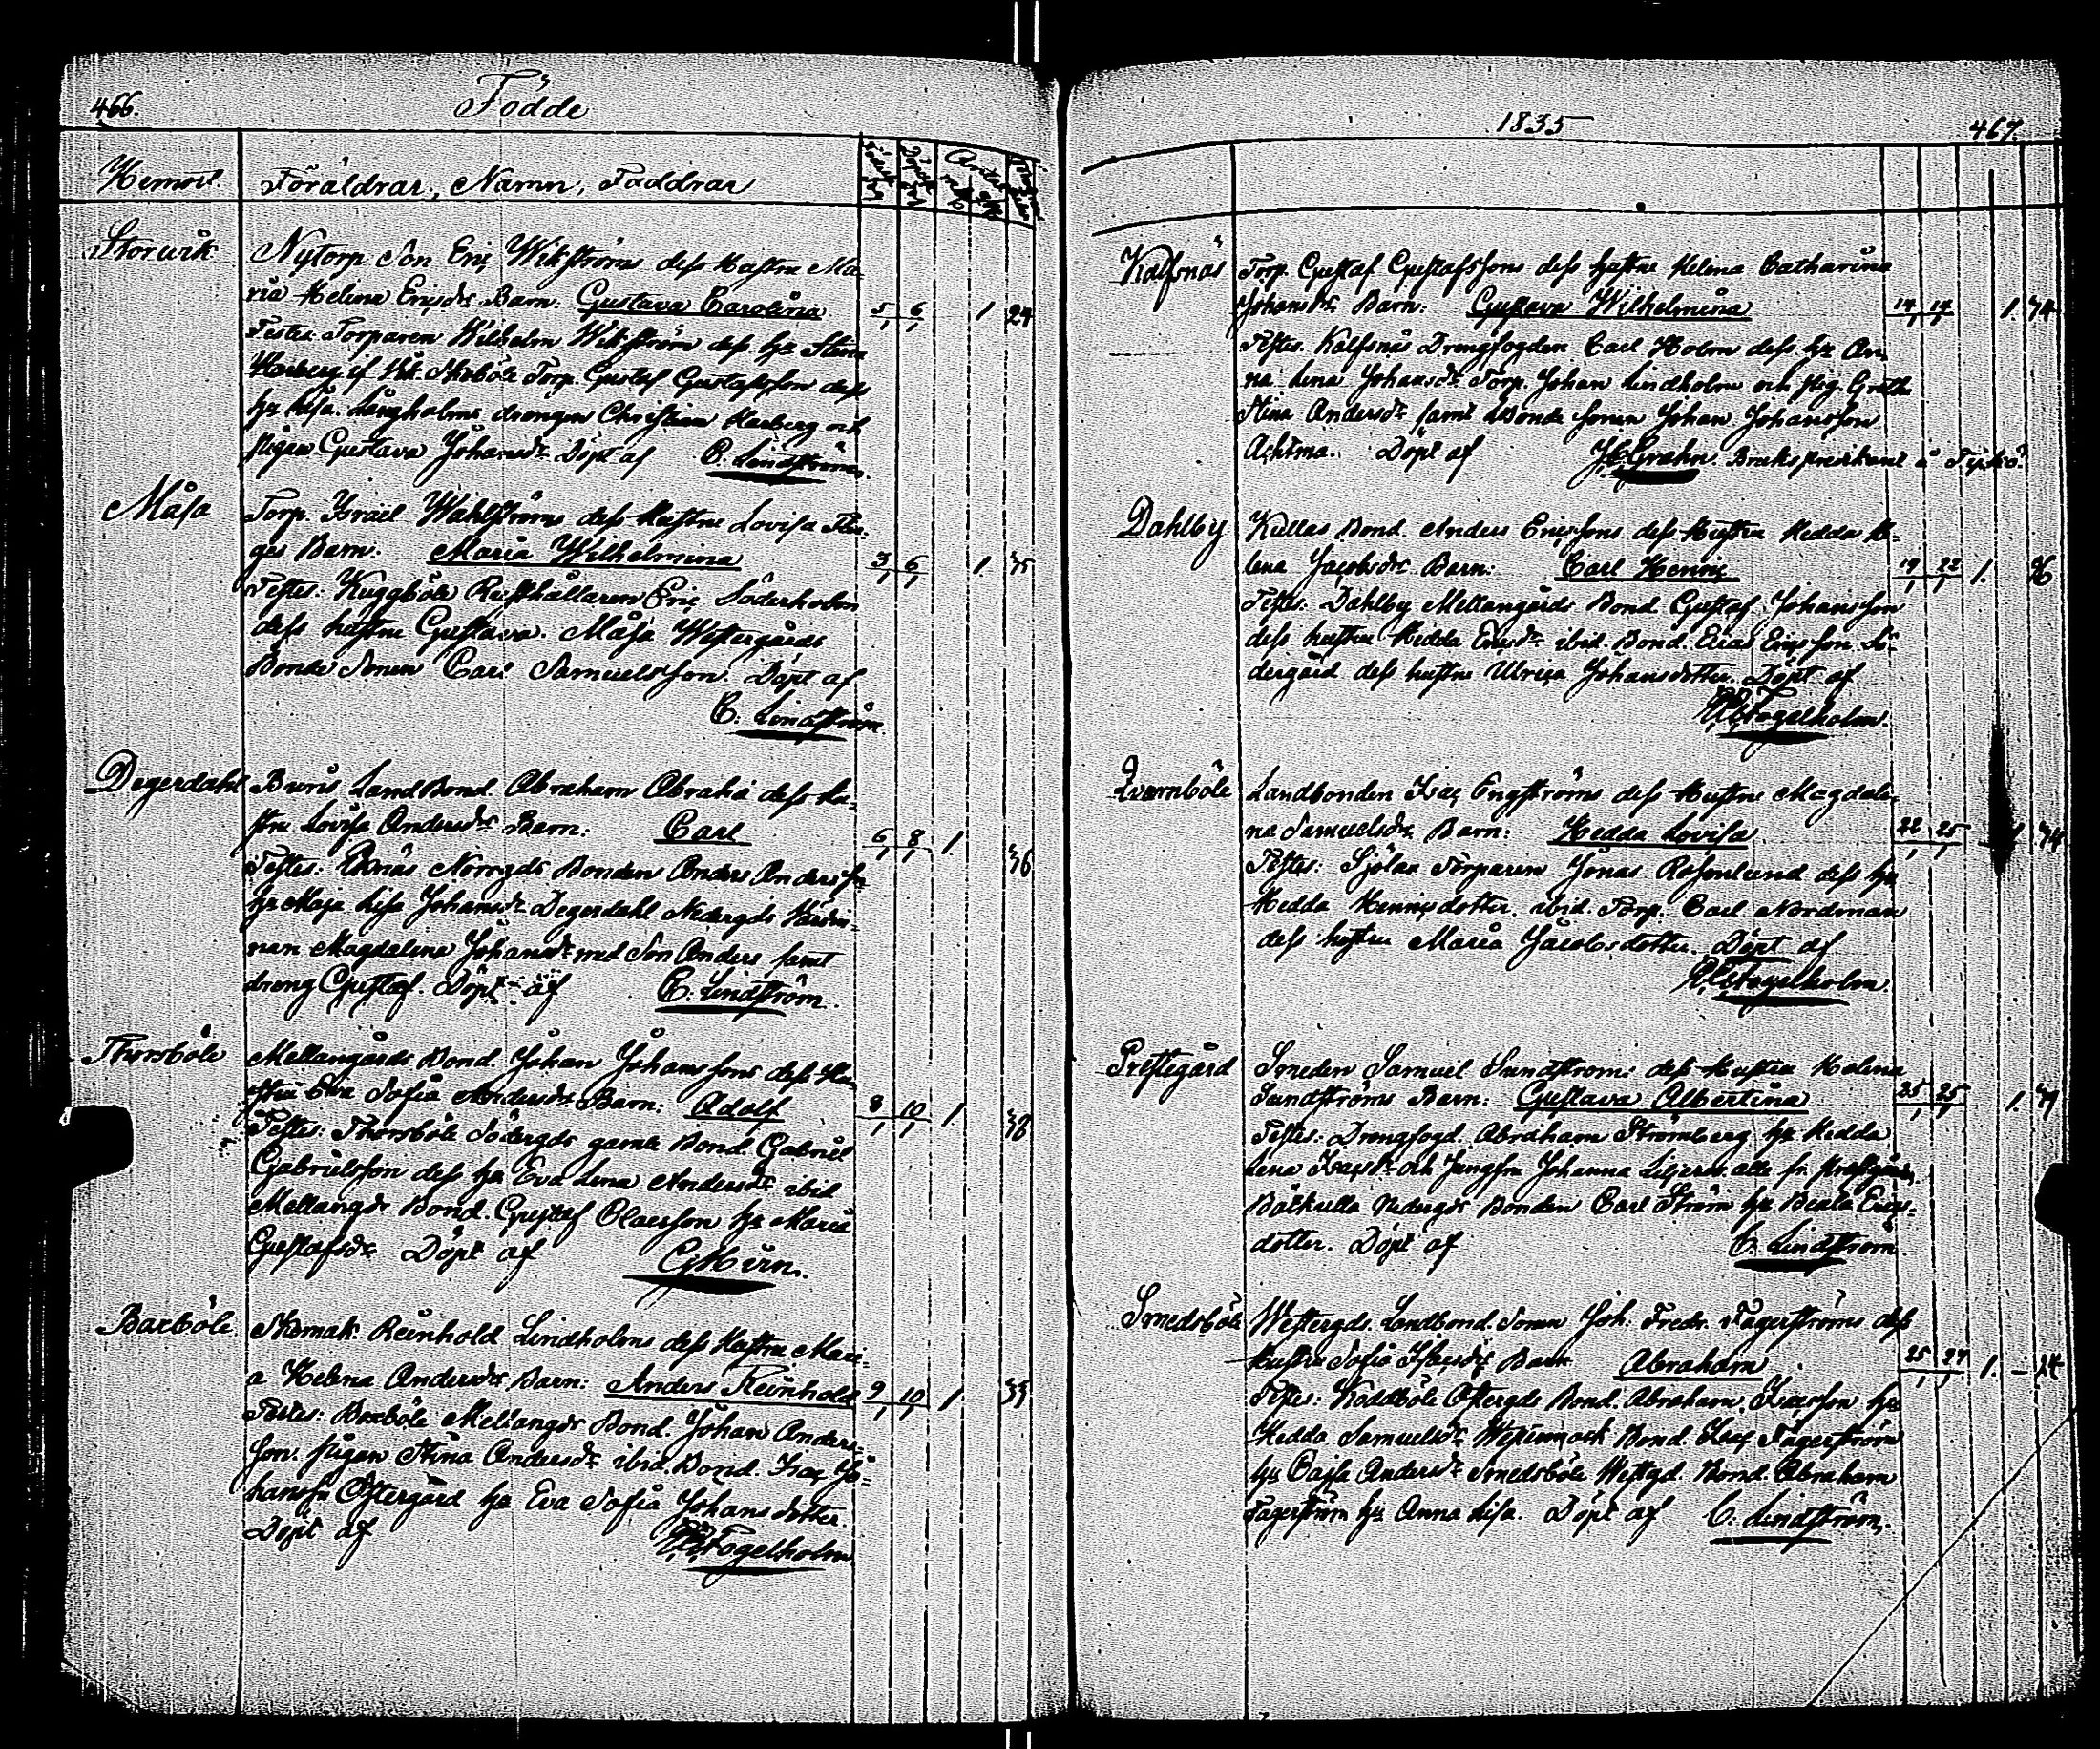 466.
Födde
Hemort. Föräldrar, Namn, Faddrar
Storwik Nytorp Son Eric Wikströms dess Hustru Ma-
ria Helena Ericsdr Barn. Gustava Carolina 5/1 6/1 1 24
Testes: Torparen Wilhelm Wikström dess hu Stina
Torp. Gustaf Gustafsson dess
hu Lisa. Långholms drengen Christian Karberg och
pigan Gustava Johansdr Döpt af C. Lindström.
Måsa Torp. Israel Wahlströms dess Hustru Lovisa
Barn: Maria Wilhelmina 3/1 6/1 1. 35
Testes: Kuggböle Rusthållaren Eric Söderholm
dess hustru Gustava. Måsa Westergårds
Bonde Sonen Carl Samuelsson. Döpt af
C. Lindström.
Degerdahl Land Bond. Abraham Abrahā dess Hu-
stru Lovisa Andersdr Barn: Carl 6/1 8/1 1. 36
Testes: Norrgds Bonden Anders Anderss.
hu Maja Lisa Johansdr Degerdahl Nedergds Värdin-
nan Magdalena Johansdr med Son Anders samt
dreng Gustaf. Döpt af C. Lindström.
Thorsböle Mellangårds Bond. Johan Johanssons dess Hu-
stru Eva Sofia Andersdr Barn: Adolf 8/1 10/1 1. 38
Testes: Thorsböle Södergds gamle Bond. Gabriel
Gabrielsson dess hu Eva Lena Andersdr ibid
Mellangds Bond. Gustaf Claesson hu Maria
Gustafsdr Döpt af
Barböle Reinhold Lindholms dess Hustru Mari-
a Helena Andersdr Barn: Anders Reinhold 9/1 10/1 1. 33
Testes: Barböle Mellangds Bond. Johan Anders-
son. pigan Stina Andersdr ibid. Bond. Isac Jo-
hansson Östergård hu Eva Sofia Johansdotter.
Döpt af Fogelholm.
1835
467.
Kalfsnäs Torp. Gustaf Gustafssons dess hustru Helena Catharina
Johansdr Barn: Gustava Wilhelmina 14/1 14/1 1. 34
Testes. Kalfsnäs Drengfogden Carl Holm dess hu An-
na Lena Johansdr Torp. Johan Lindholm och pig. Greta
Stina Andersdr samt Bonde sonen Johan Johansson
Döpt af Grahn. Bruks predikant å Tykö.
Dahlby Kullas Bond. Anders Ericssons dess Hustru Hedda He-
lena Jacobsdr Barn: Carl Henric 19/1 22/1 1. 26
Testes: Dahlby Mellangårds Bond. Gustaf Johansson
dess hustru Hedda Ericsdr ibid. Bond. Elias Ericsson Sö-
dergård dess hustru Ulrica Johansdotter. Döpt af
Fogelholm.
Qvarnböle Landbonden Isac Engströms dess Hustru Magdale-
na Samuelsdr Barn: Hedda Lovisa 22/1 25/1 1. 34
Testes: Sjölax Torparen Jonas Rosenlund dess hu
Hedda Henricsdotter. ibid. Torp. Carl Nordman
dess hustru Maria Jacobsdotter. Döpt af
Fogelholm.
Prestegård Smeden Samuel Sundströms dess Hustru Helena
Sundströms Barn: Gustava Albertina 25/1 25/1 1.
Testes: Drengfogd. Abraham Strömberg hu Hedda
Lena Isacsdr och Jungfru Johanna alla fr. Prestgård.
Båtkulla Nedergds Bonden Carl Ström hu Beata Erics-
dotter. Döpt af C. Lindström
Smedsböle Westergds. Landbond. Sonen Joh. Fredr. Fagerströms dess
Hustru Sofia Isacsdr Barn Abraham 25/1 27/1 1. - 24
Testes: Koddböle Östergds Bond. Abraham Isacsson hu
Hedda Samuelsdr Bond. Isac Fagerström
hu Cajsa Andersdr Smedsböle Westgd. Bond. Abraham
Fagerström hu Anna Lisa. Döpt af C. Lindström.